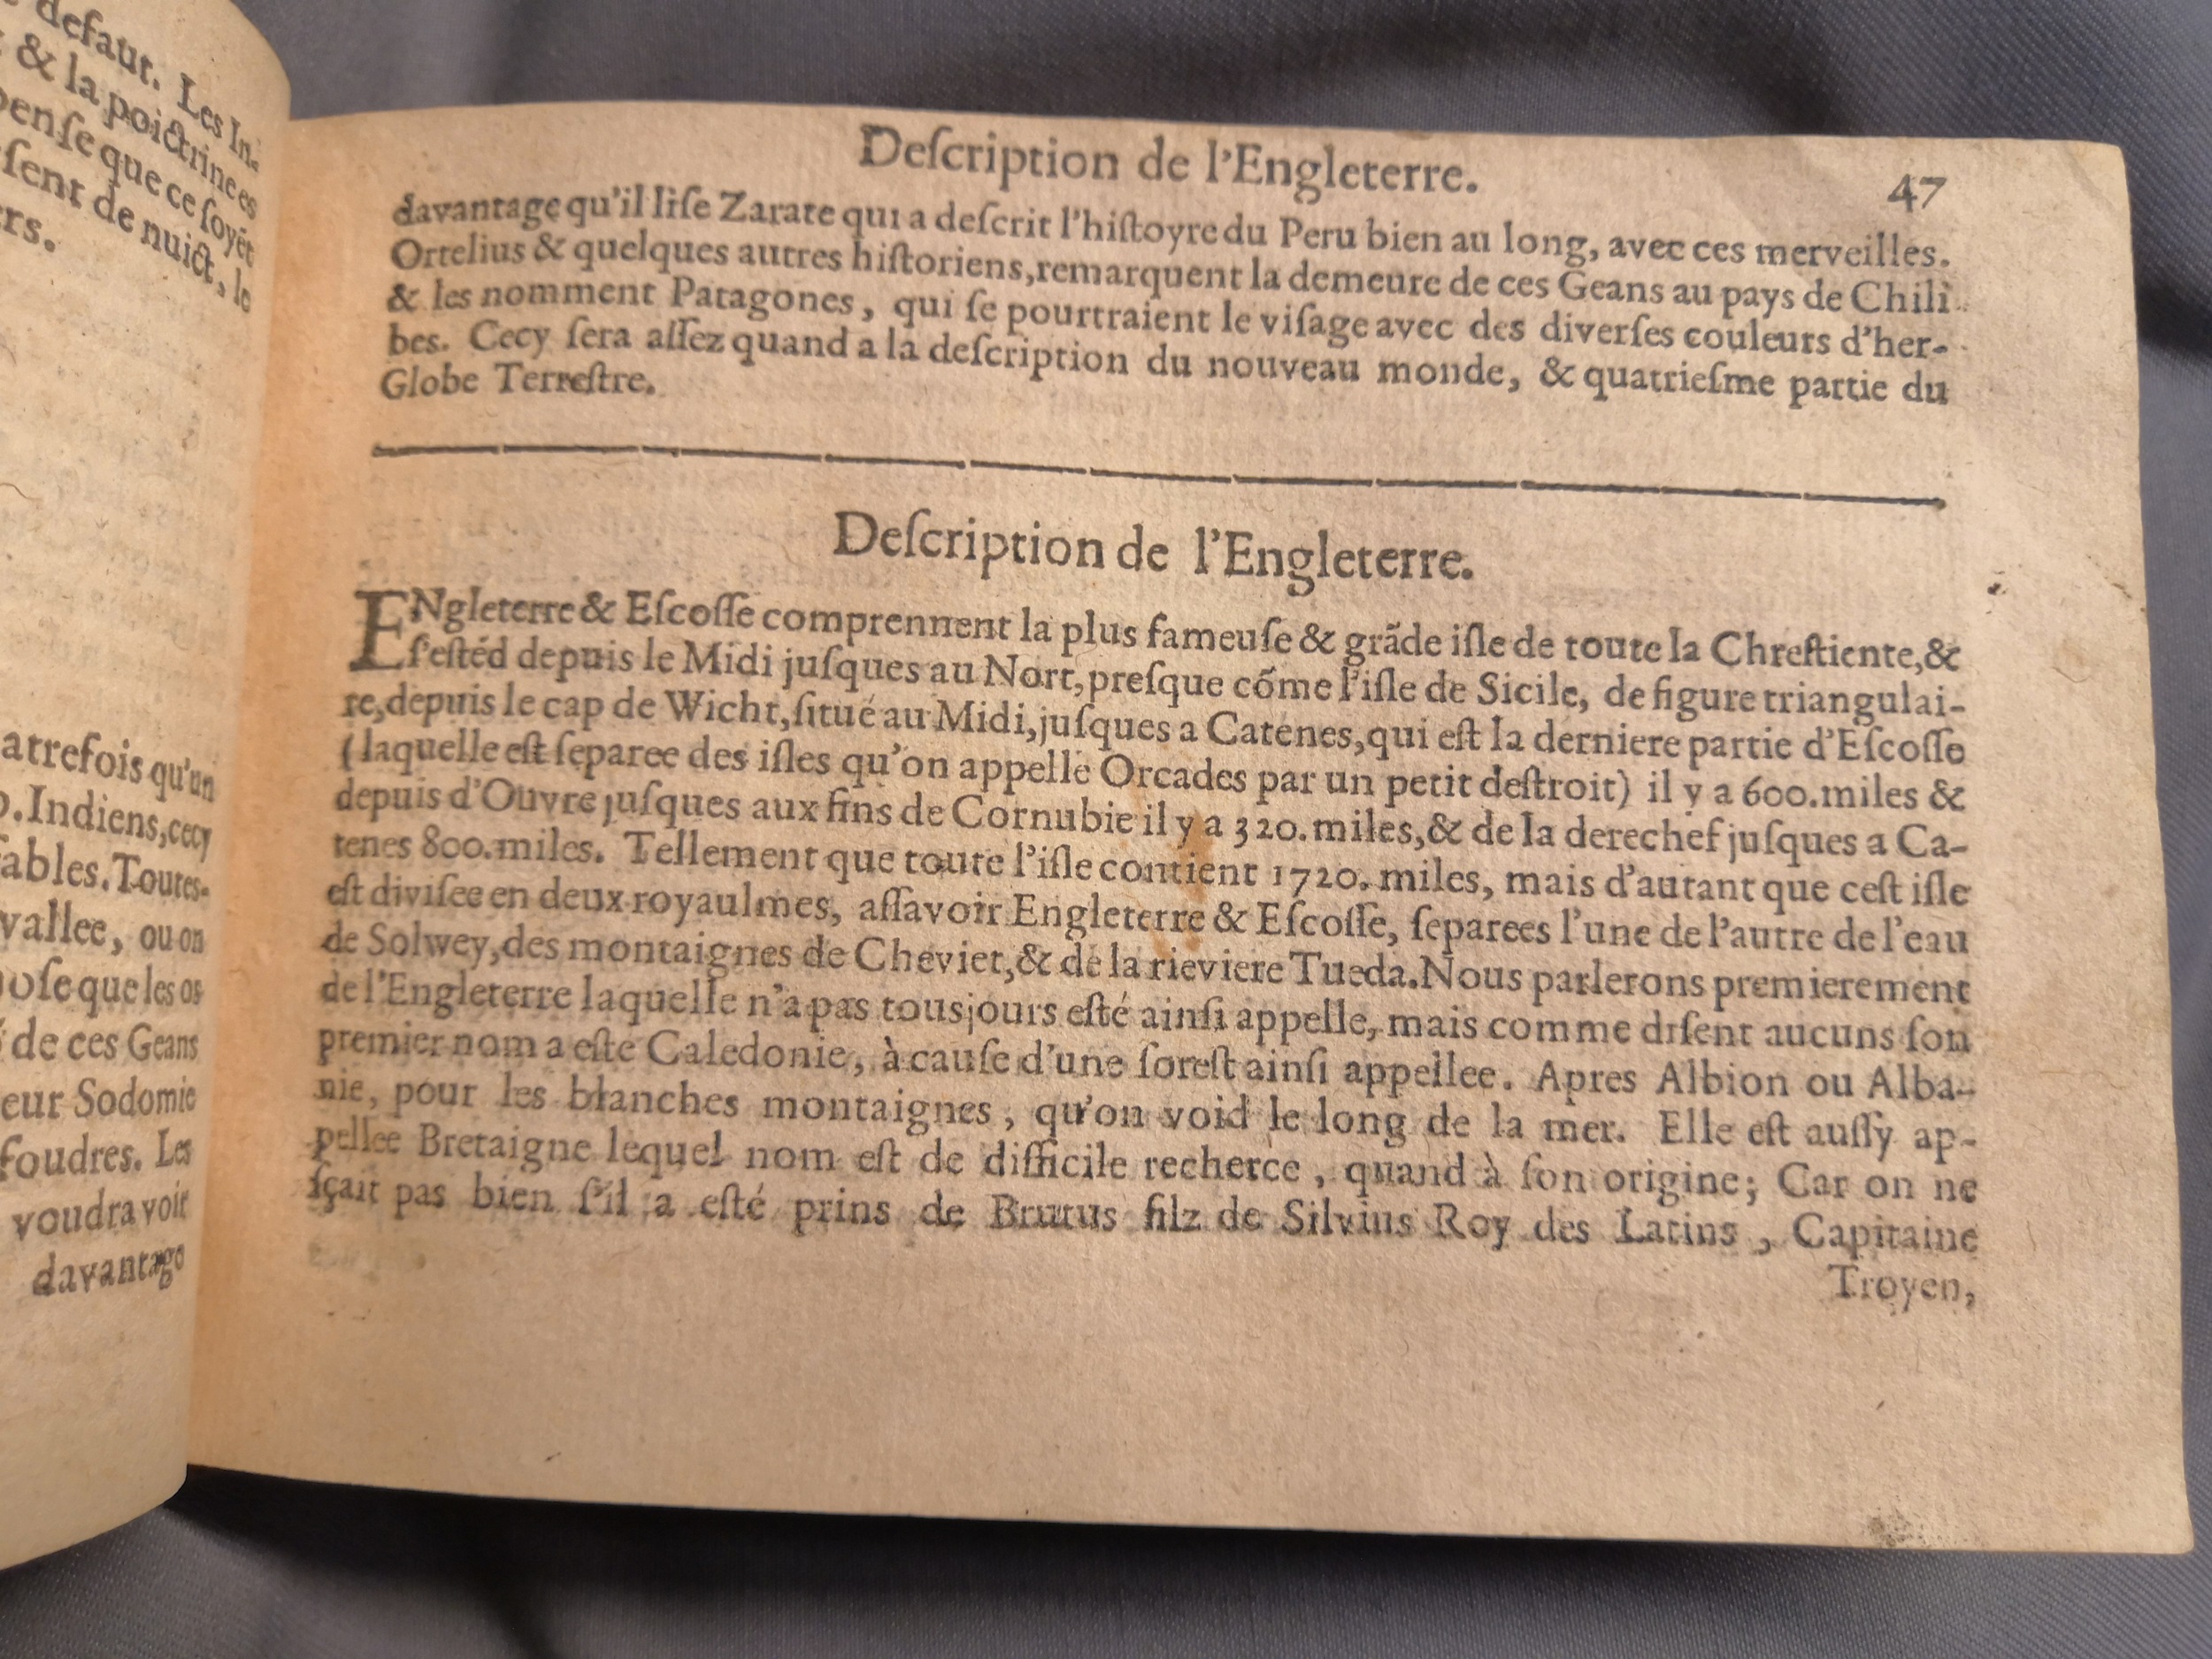 defaut. Les In-
& la poictrine es
pense que ce ſoyēt
ſent de nuict, le
rs.
atrefois qu'un
o. Indiens, cecy
ables. Toutes-
vallee, ou on
oſe que les os
de ces Geans
eur Sodomie
foudres. Les
voudra voir
davantage
Deſcription de l'Engleterre.
47
davantage qu'il liſe Zarate qui a deſcrit l'hiſtoyre du Peru bien au long, avec ces merveilles.
Ortelius & quelques autres hiſtoriens, remarquent la demeure de ces Geans au pays de Chili
& les nomment Patagones, qui ſe pourtraient le viſage avec des diverſes couleurs d'her-
bes. Cecy ſera aſſez quand a la deſcription du nouveau monde, & quatrieſme partie du
Globe Terreſtre.
Deſcription de l'Engleterre.
ENgleterre & Eſcoſſe comprennent la plus fameuſe & grãde iſle de toute la Chreſtiente, &
ſ'eſtéd depuis le Midi juſques au Nort, preſque cõme l'iſle de Sicile, de figure triangulai-
re, depuis le cap de Wicht, ſitué au Midi, juſques a Catenes, qui eſt la derniere partie d'Eſcoſſe
(laquelle eſt ſeparee des iſles qu'on appelle Orcades par un petit deſtroit) il y a 600. miles &
depuis d'Ouvre juſques aux fins de Cornubie il y a 320. miles, & de la derechef juſques a Ca-
tenes 800. miles. Tellement que toute l'iſle contient 1720. miles, mais d'autant que ceſt iſle
eſt diviſee en deux royaulmes, aſſavoir Engleterre & Eſcoſſe, ſeparees l'une de l'autre de l'eau
de Solwey, des montaignes de Cheviet, & de la rieviere Tueda. Nous parlerons premierement
de l'Engleterre laquelle n'a pas tousjours eſté ainſi appelle, mais comme diſent aucuns ſon
premier nom a eſte Caledonie, à cauſe d'une foreſt ainſi appellee. Apres Albion ou Alba-
nie, pour les blanches montaignes, qu'on void le long de la mer. Elle eſt auſſy ap-
pellee Bretaigne lequel nom eſt de difficile recherce, quand à ſon origine; Car on ne
ſçait pas bien ſ'il a eſté prins de Brutus filz de Silvius Roy des Latins, Capitaine
Troyen,